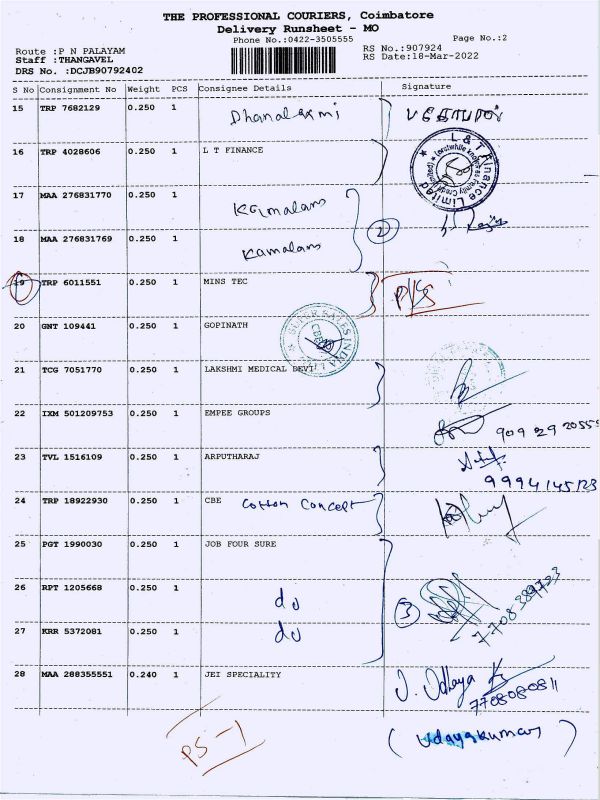 THE PROFESSIONAL COURIERS, Coimbatore
Delivery Runsheet - MO
Phone No.:0422-3505555 Page No.:2
Route :P N PALAYAM RS No.:907924
Staff :THANGAVEL RS Date:18-Mar-2022
DRS No. :DCJB90792402
S No Consignment No Weight PCS Consignee Details Signature
15 TRP 7682129 0.250 1 Dhanalaxmi
16 TRP 4028606 0.250 1 L T FINANCE
L & T Finance Limited
17 MAA 276831770 0.250 1 Kamalam
18 MAA 276831769 0.250 1 Kamalam 2
19 TRP 6011551 0.250 1 MINS TEC
20 GNT 109441 0.250 1 GOPINATH
21 TCG 7051770 0.250 1 LAKSHMI MEDICAL DEVI
22 IXM 501209753 0.250 1 EMPEE GROUPS
23 TVL 1516109 0.250 1 ARPUTHARAJ
9994145123
24 TRP 18922930 0.250 1 CBE Cotton Concept
25 PGT 1990030 0.250 1 JOB FOUR SURE
26 RPT 1205668 0.250 1 do 3 7708389723
27 KRR 5372081 0.250 1 do
28 MAA 288355551 0.240 1 JEI SPECIALITY J. Udhaya
7708080811
PS-1 (Udayakumar)